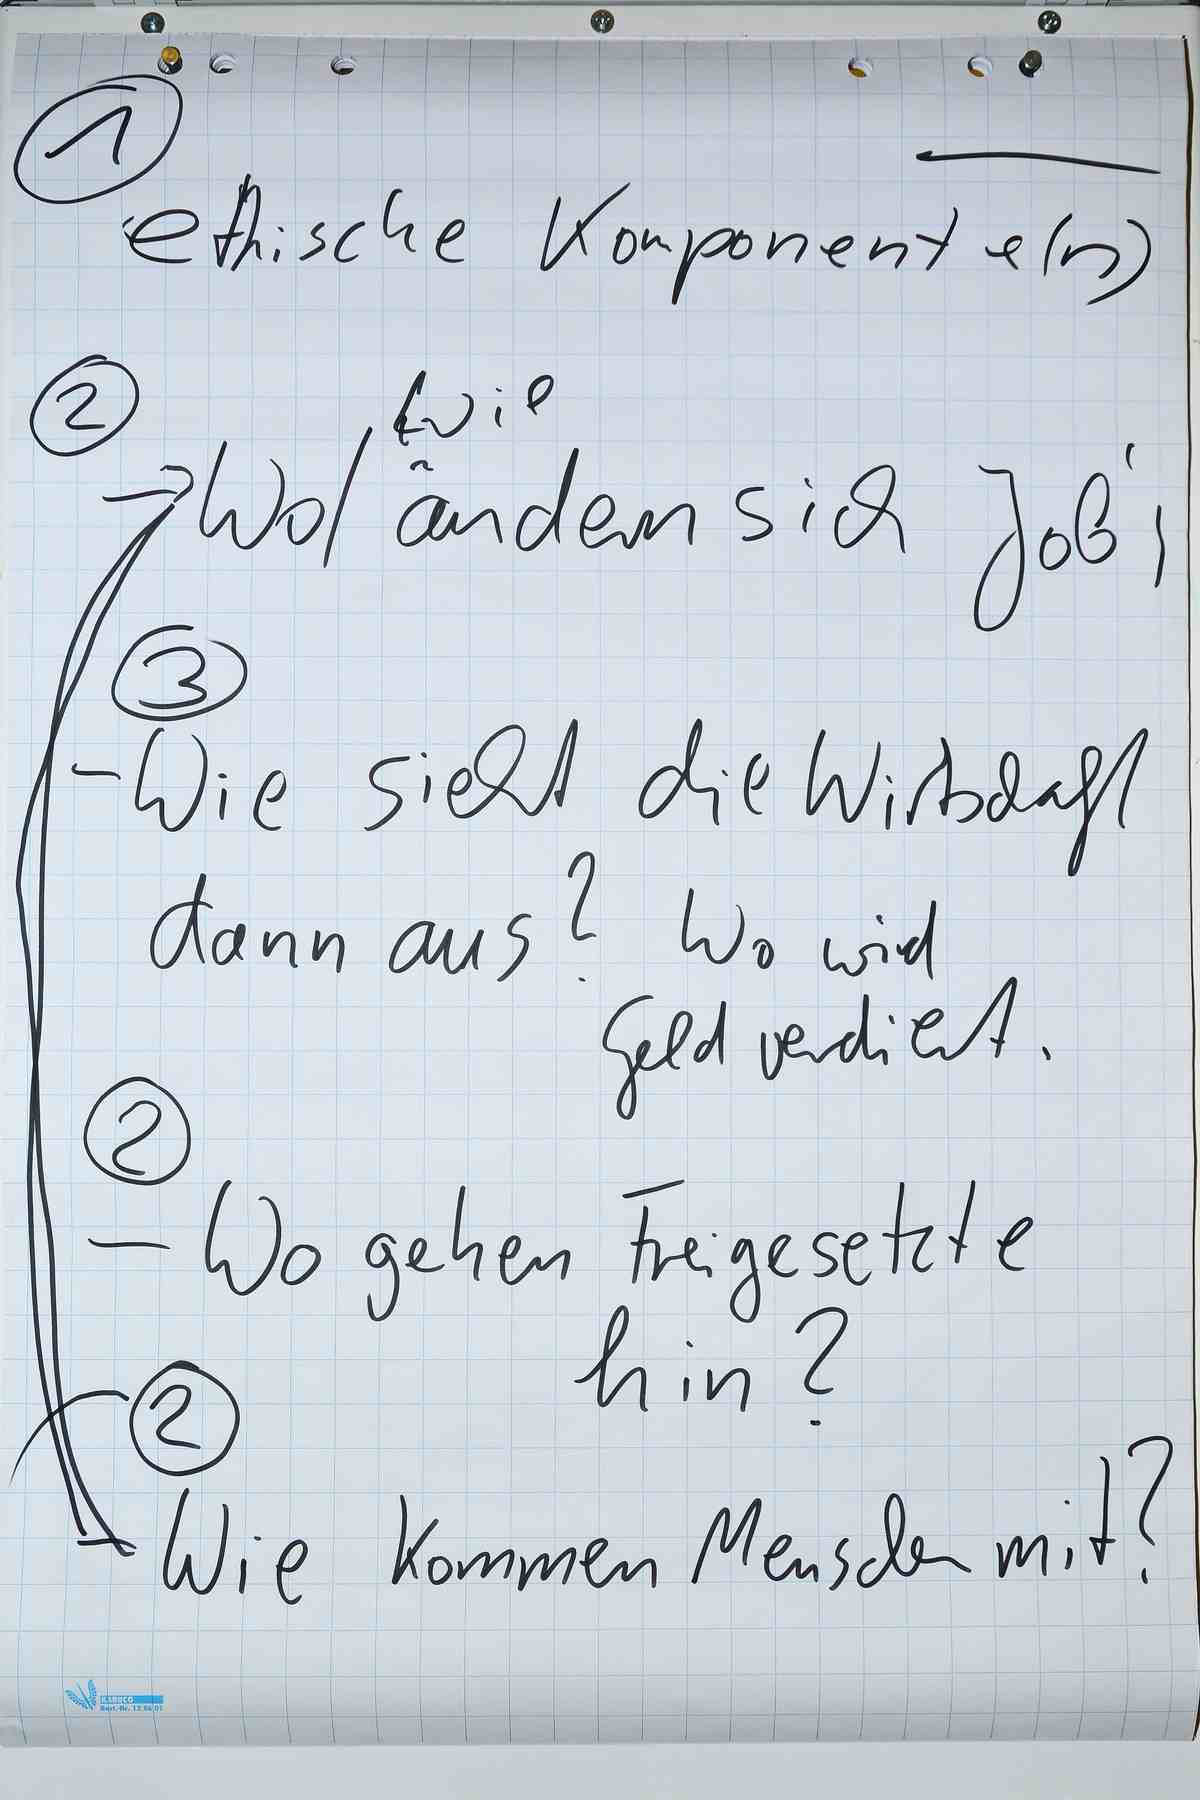 1
ethische Komponente(n)
2
wie
Wo/ ändern sich Job's
3
- Wie sieht die Wirtschaft
dann aus? Wo wird
Geld verdient.
2
- Wo gehen Freigesetzte
hin?
2
- Wie kommen Menschen mit?